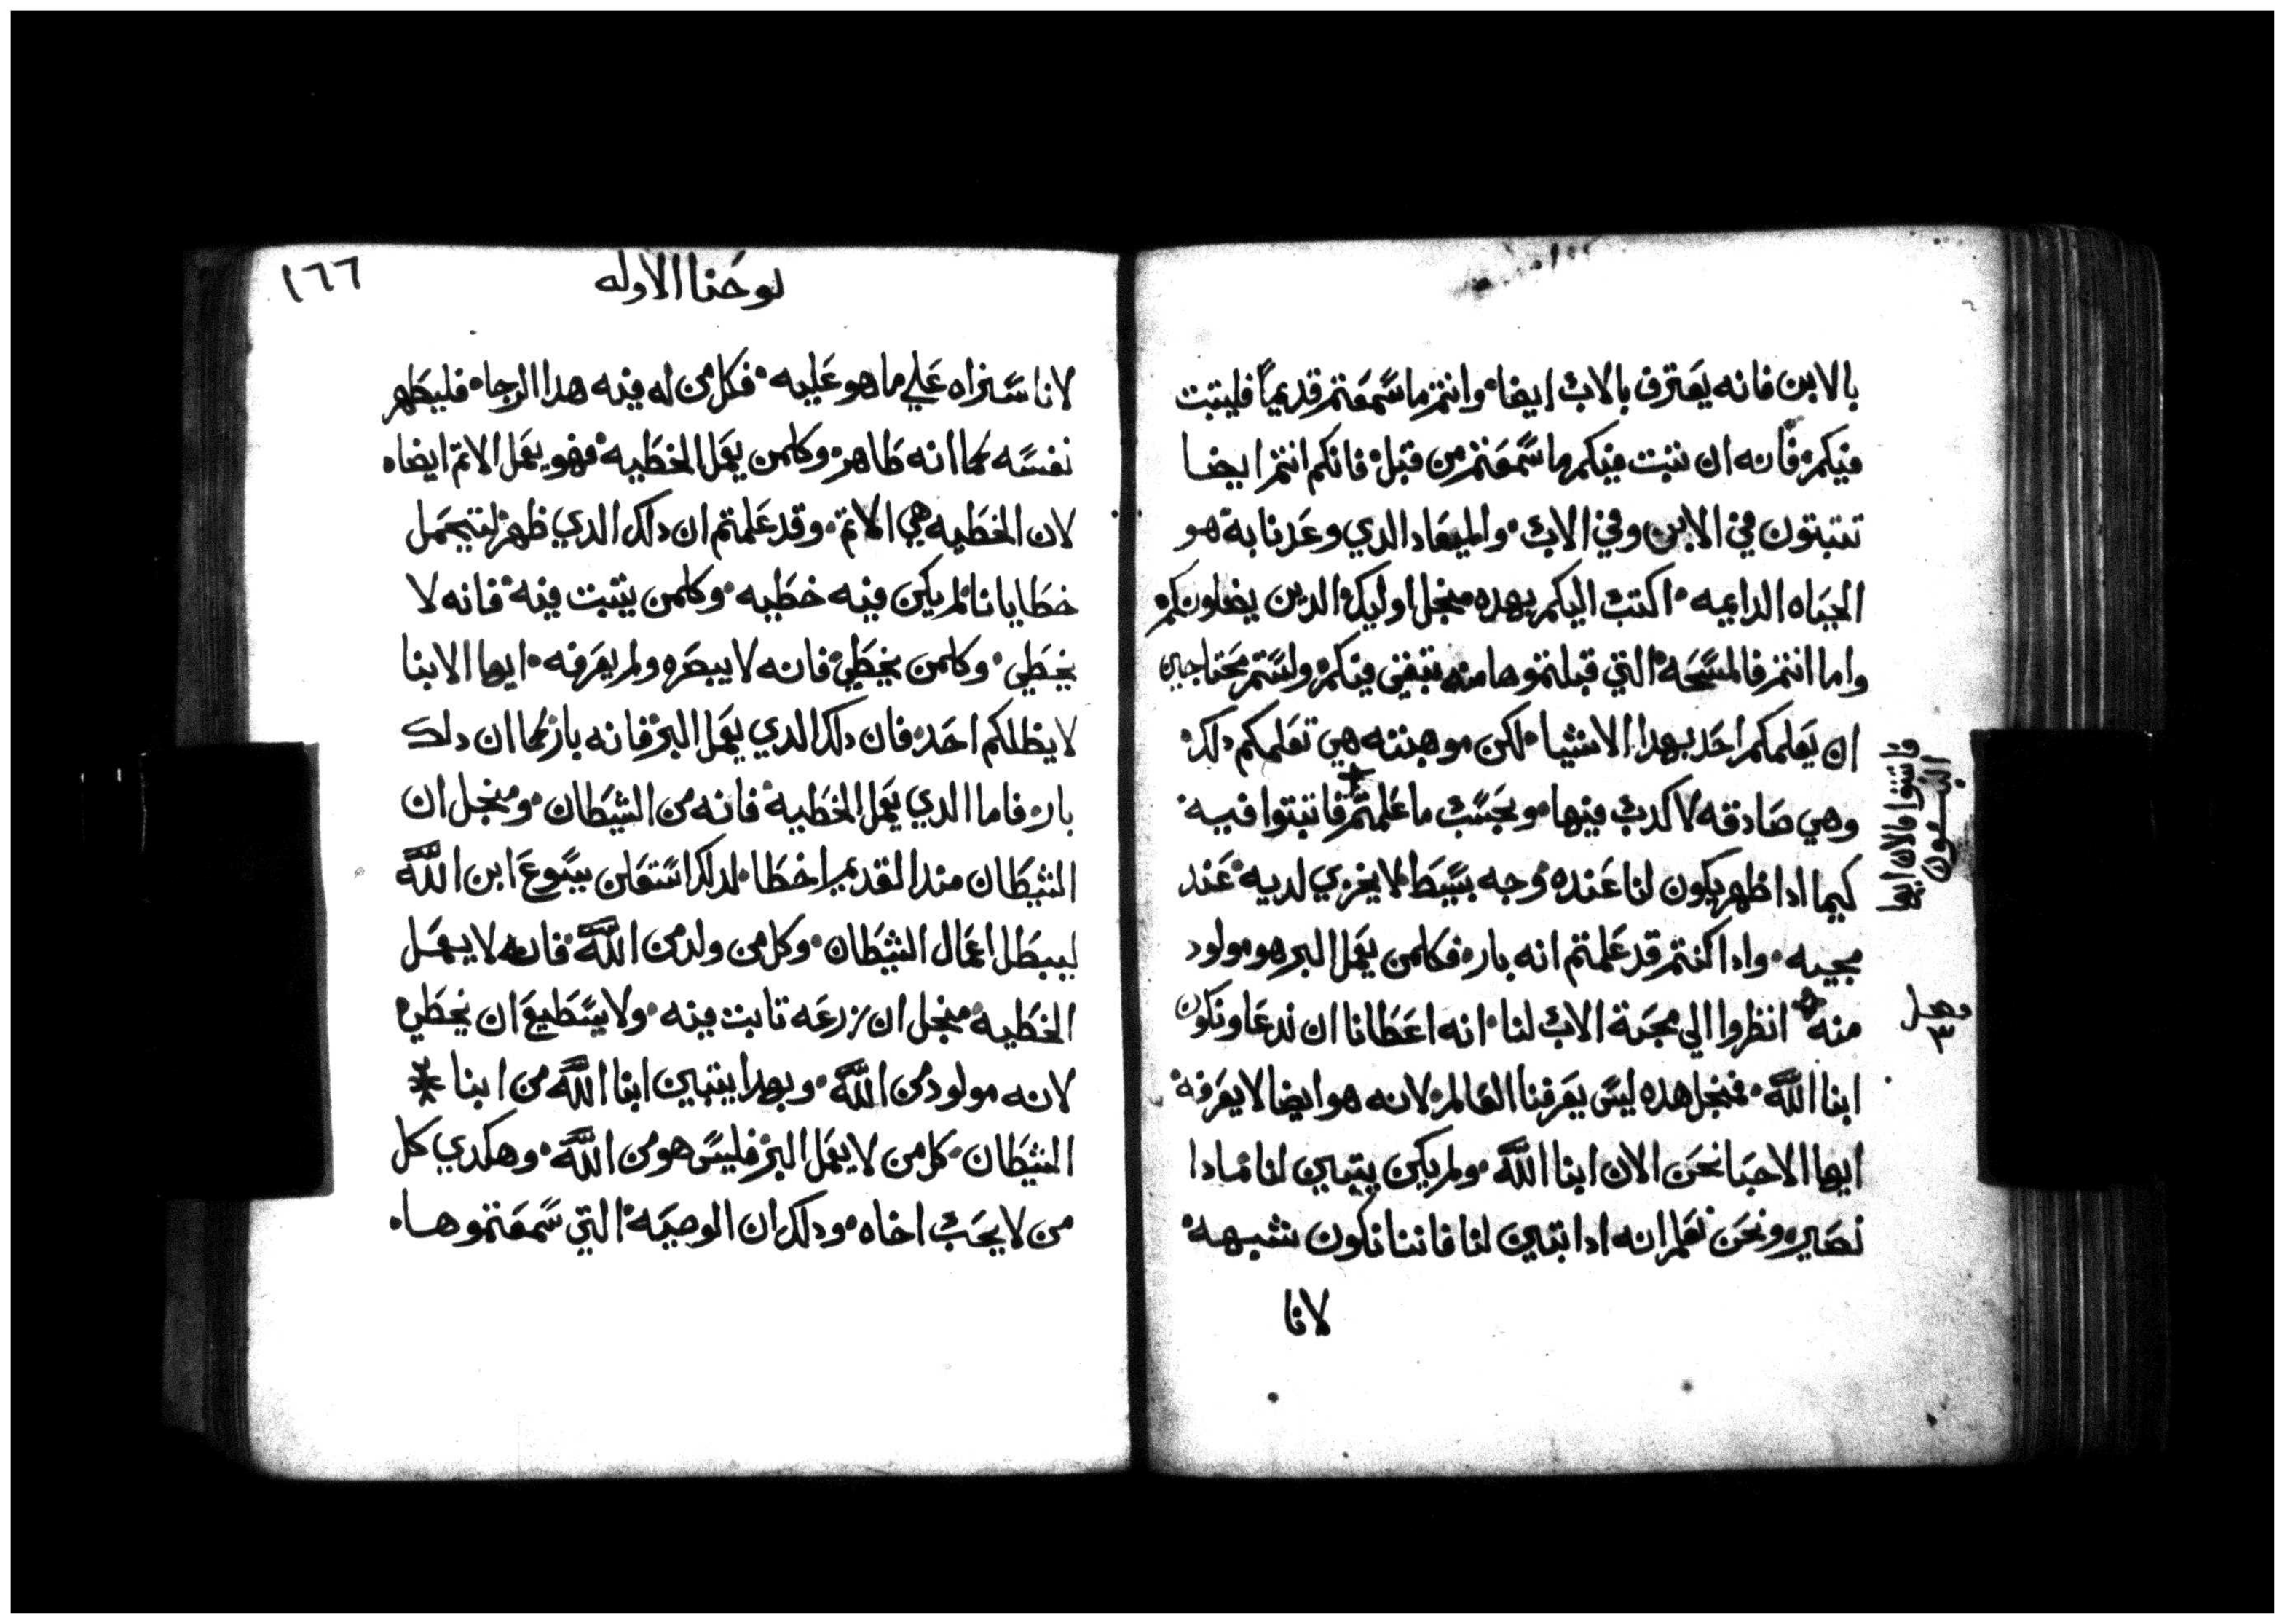 بالابن فانه يعترف بالاب ايضا۰ وانتم ما سمعتم قديماً فليتبت
فيكم۰ فانه ان تبت فيكم ما سمعتم من قبل۰ فانكم انتم ايضا
تتبتون في الابن وفي الاب۰ والميعاد الدي وعدنا به هو
الحياه الدايمه۰ اكتب اليكم بهده منجل اوليك الدين يضلونكم۰
واما انتم فالمسحه التي قبلتموها منه تبقى فيكم۰ ولستم محتاجين
ان يعلمكم احد بهدا الاشيا۰ لكن موهبته هي تعلمكم دلك۰
وهي صادقه لا كدب فيها۰ وبحسب ما علمتم فاتبتوا فيه۰
كيما ادا ظهر يكون لنا عنده وجه بسيط۰ لا يخزي لديه۰ عند
مجيه۰ وادا كنتم قد علمتم انه بار۰ فكلمن يعمل البر هو مولود
منه انظروا الي محبة الاب لنا۰ انه اعطانا ان ندعا ونكون
ابنا اللّه۰ فمنجل هده ليس يعرفنا العالم۰ لانه هو ايضا لا يعرفه۰
ايها الاحبا نحن الان ابنا اللّه۰ ولم يكن يتبين لنا مادا
نصير۰ ونحن نعلم انه ادا تبين لنا فاننا نكون شبهه۰
لانا
فاتبتوا والان ايها
البنون
فصل
٣
يوحنا الاوله
١٦٦
لانا سنراه علي ما هو عليه۰ فكل من له فيه هدا الرجا۰ فليطهر
نفسه كما انه طاهر۰ وكلمن يعمل الخطيه۰ فهو يعمل الاتم ايضا۰
لان الخطيه هي الاتم۰ وقد علمتم ان دلك الدي ظهر۰ ليتحمل
خطايانا۰ لم يكن فيه خطيه۰ وكلمن يتبت فيه۰ فانه لا
يخطي۰ وكلمن يخطي۰ فانه لا يبصره ولم يعرفه۰ ايها الابنا
لا يظلكم احد۰ فان دلك الدي يعمل البر۰ فانه بار كما ان دلك
بار۰ فاما الدي يعمل الخطيه۰ فانه من الشيطان۰ ومنجل ان
الشيطان مندا القديم اخطا۰ لدلك استعلن يسوع ابن اللّه
ليبطل اعمال الشيطان۰ وكل من ولد من اللّه۰ فانه لا يعمل
الخطيه۰ منجل ان زرعه تابت فيه۰ ولا يسطيع ان يخطي۰
لانه مولود من اللّه۰ وبهدا يتبين ابنا اللّه من ابنا
الشيطان۰ كل من لا يعمل البر۰ فليس هو من اللّه۰ وهكدي كل
من لا يحب اخاه۰ ودلك ان الوصيه۰ التي سمعتموها۰